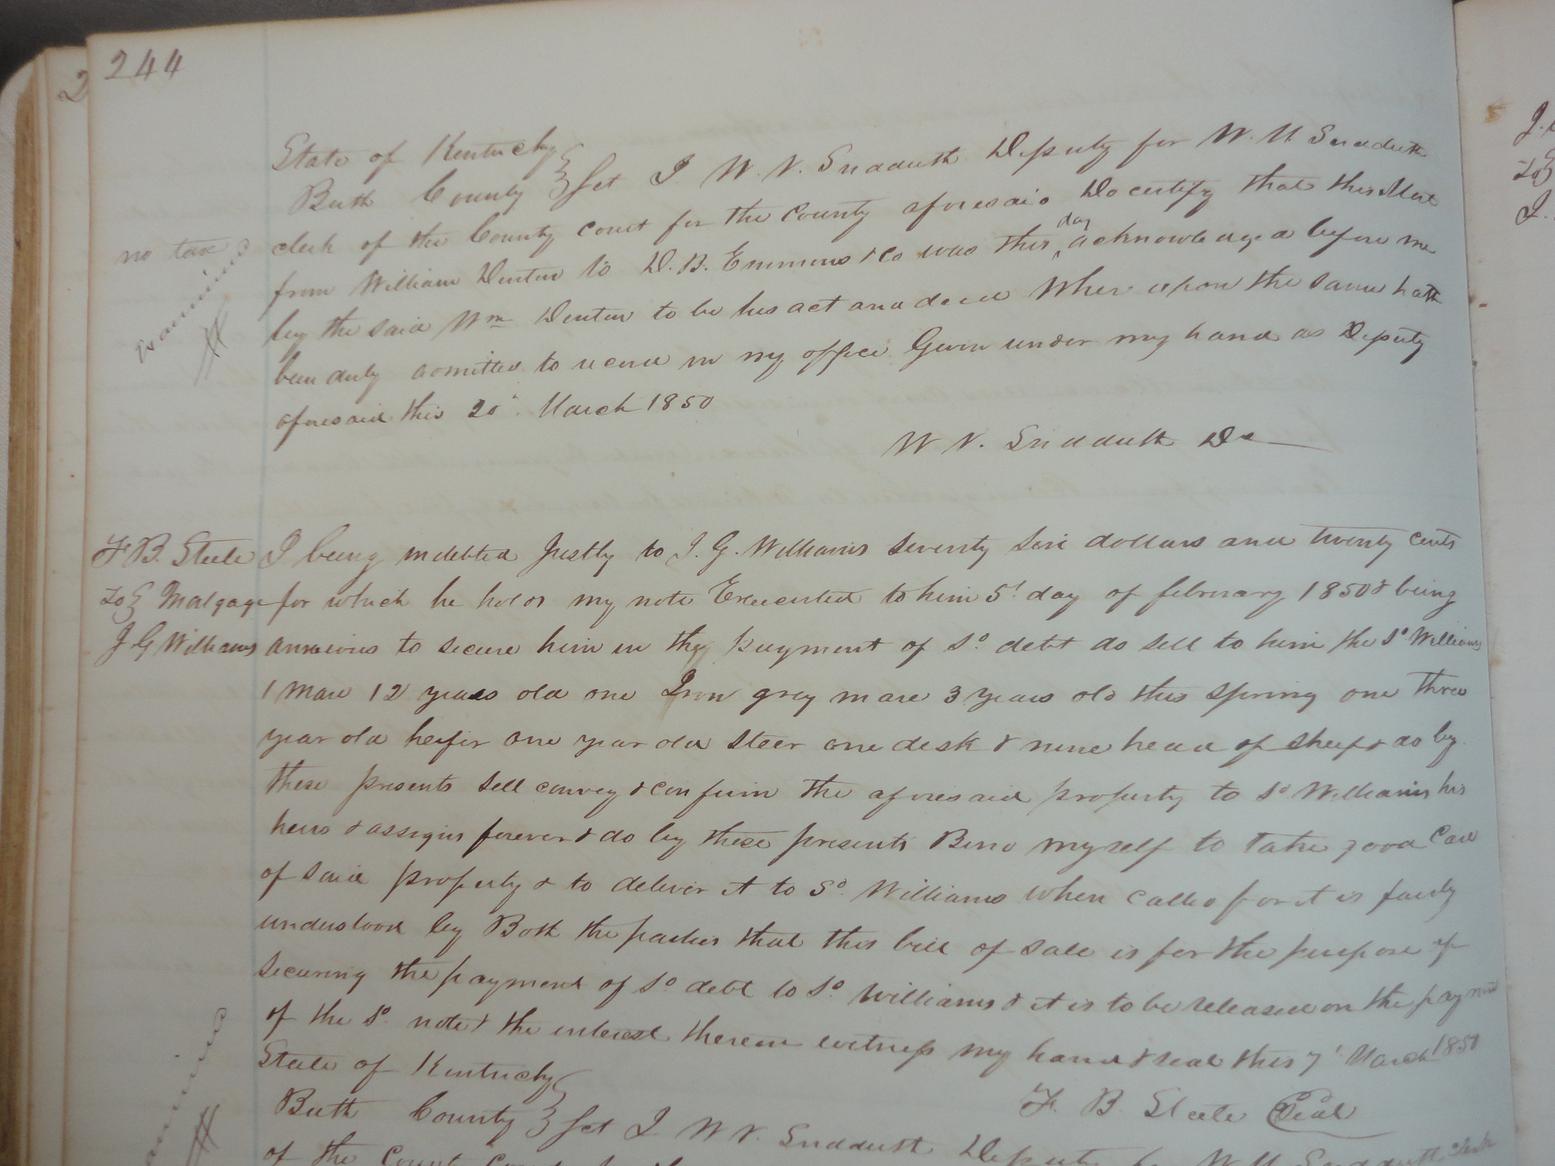 244
State of Kentucky
Bath County } Sct I W. N. Sudduth Deputy for W. M Sudduth
clerk of the County court for the county aforesaid Do certify that this Mort
no tax
from William Denton to D. B. Emmons & Co was this day acknowledged before me
by the said Wm Denton to be his act and deed Where upon the same hath
Examined
been duly admitted to record in my office Given under my hand as Deputy
aforesaid this 20' March 1850
W N. Sudduth Dc
F B. Steele
To } Mortgage
J G Williams
I being indebted justly to J. G. Williams Seventy Six dollars and twenty cents
for which he holds my note Executed to him 5' day of february 1850 & being
anxious to secure him in the payment of Sd debt do sell to him the Sd Williams
1 Mare 12 years old one Iron grey mare 3 years old this Spring one three
year old heifer one year old Steer one desk & nine head of Sheep & do by
these presents Sell convey & confirm the aforesaid property to Sd Williams his
heirs & assigns forever & do by these presents Bind myself to take good care
of said property & to deliver it to Sd Williams when called for it is fairly
understood by Both the parties that this bill of sale is for the purpose of
Securing the payment of Sd debt to Sd Williams & it is to be released on the payment
of the Sd note & the interest thereon witness my hand & seal this 7' March 1850
F. B. Steele Seal
State of Kentucky
Bath County } Sct I W N. Sudduth Deputy for W. M Sudduth Clerk
of the County Court